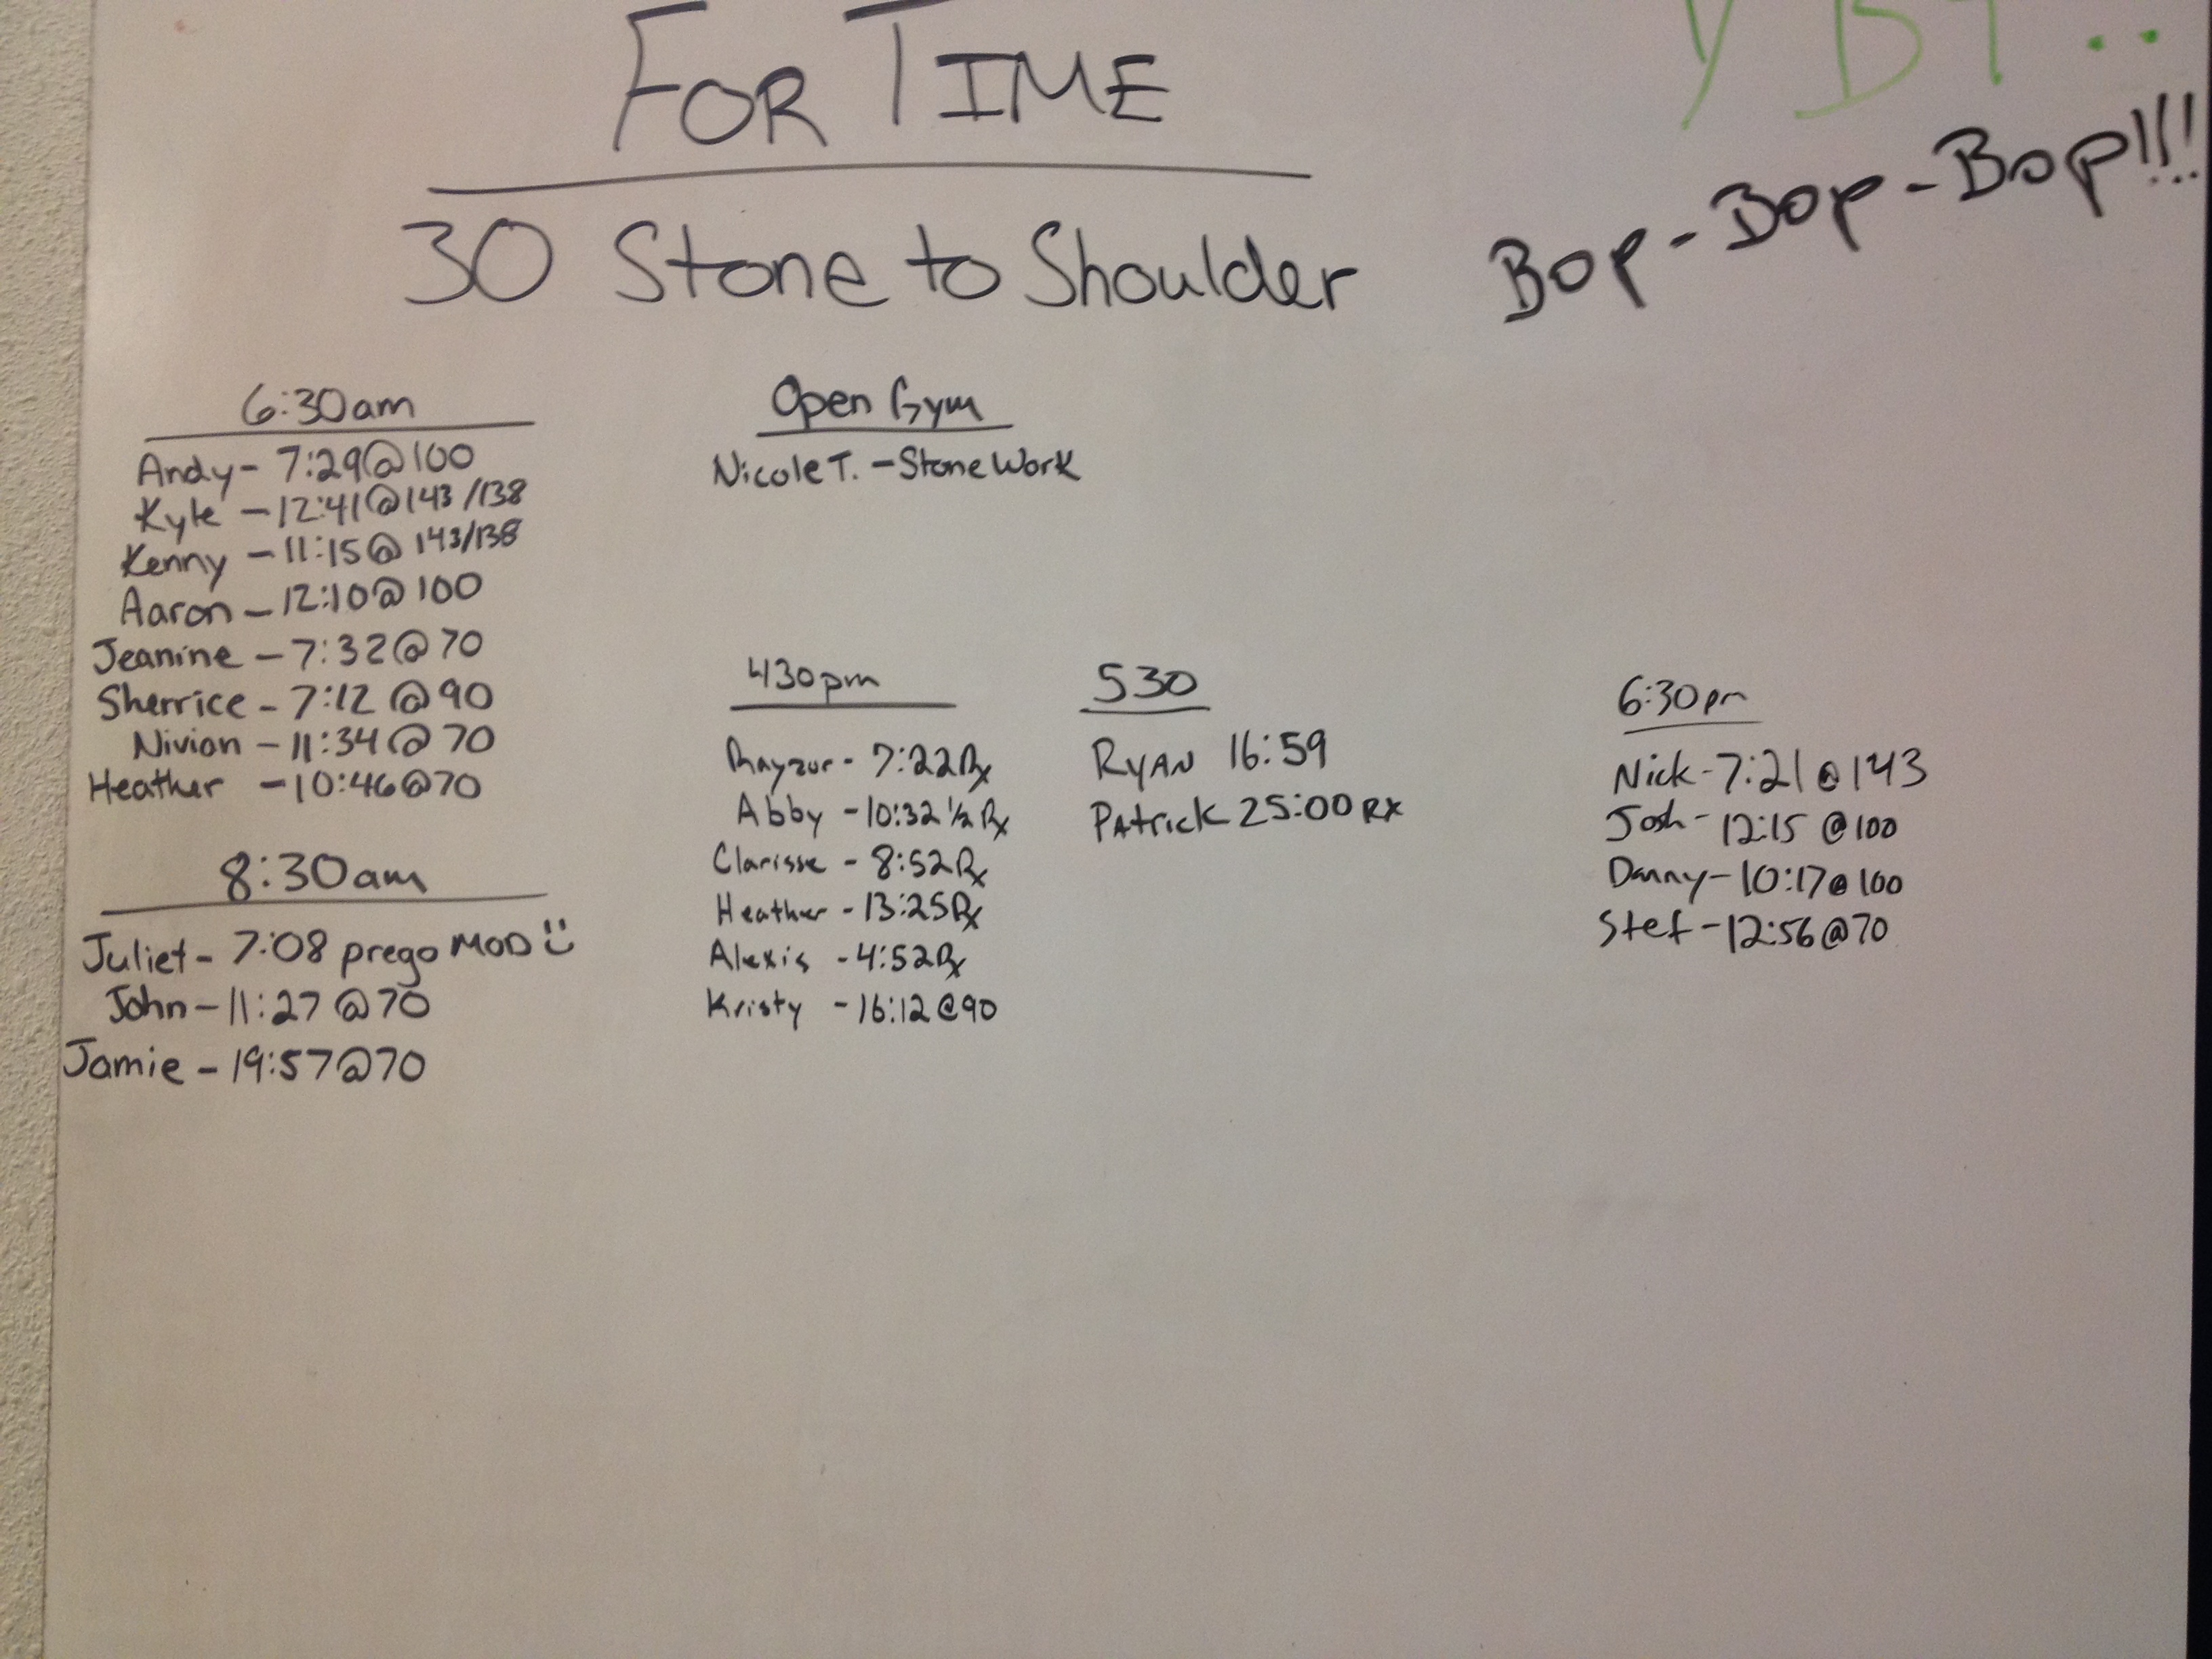 FOR TIME
30 Stone to Shoulder
Bop-Bop-Bop!!!
6:30am
Andy- 7:29@100
Kyle -12:41@143/138
Kenny -11:15@ 143/138
Aaron -12:10@100
Jeanine -7:32@70
Sherrice -7:12 @90
Nivion -11:34@70
Heather -10:46@70
8:30am
Juliet- 7:08 prego MOD
John-11:27@70
Jamie -19:57@70
Open Gym
Nicole T. -Stone Work
430pm
Rayzor- 7:22Rx
Abby -10:32 ½ Rx
Clarisse - 8:52Rx
Heather -13:25Rx
Alexis -4:52Rx
Kristy -16:12@90
530
RYAN 16:59
PAtrick 25:00 RX
6:30pm
Nick-7:21@143
Josh-12:15 @100
Danny-10:17@100
Stef-12:56@70